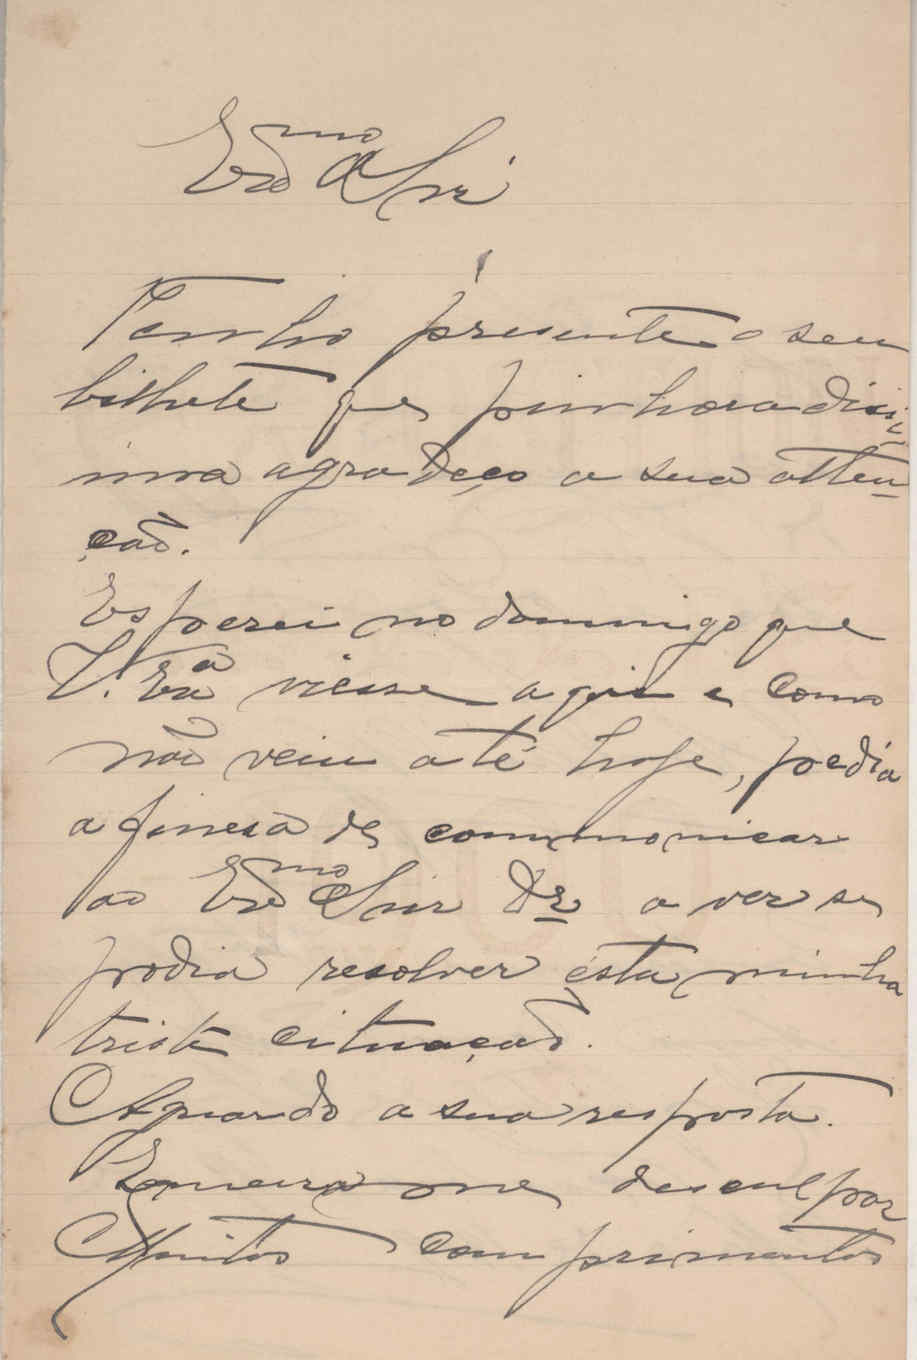 Exmo Snr
Tenho presente o seu
bilhete que pinhoradissi-
ma agradeço a sua atten-
ção.
Esperei no domingo que
V. Exa viesse aqui e como
não veiu até hoje, pedia
a finesa de communicar
ao Exmo Snr Dr a ver se
podia resolver esta minha
triste cituação.
Aguardo a sua resposta.
Queira me desculpar
Muitos comprimentos